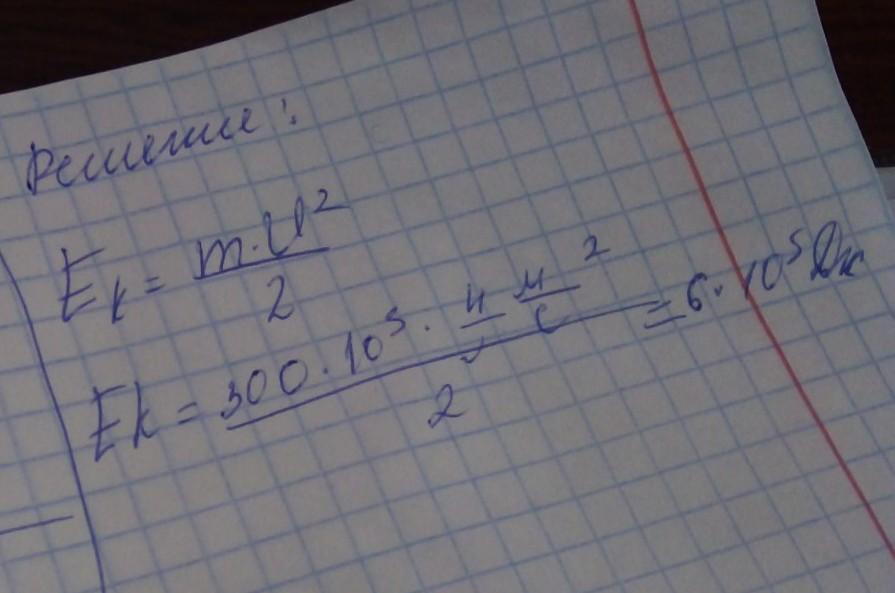 Решение:
Eк = m·υ²/2
Ek = 300·10³·4 м/с ²/2 = 6·10⁵ Дж